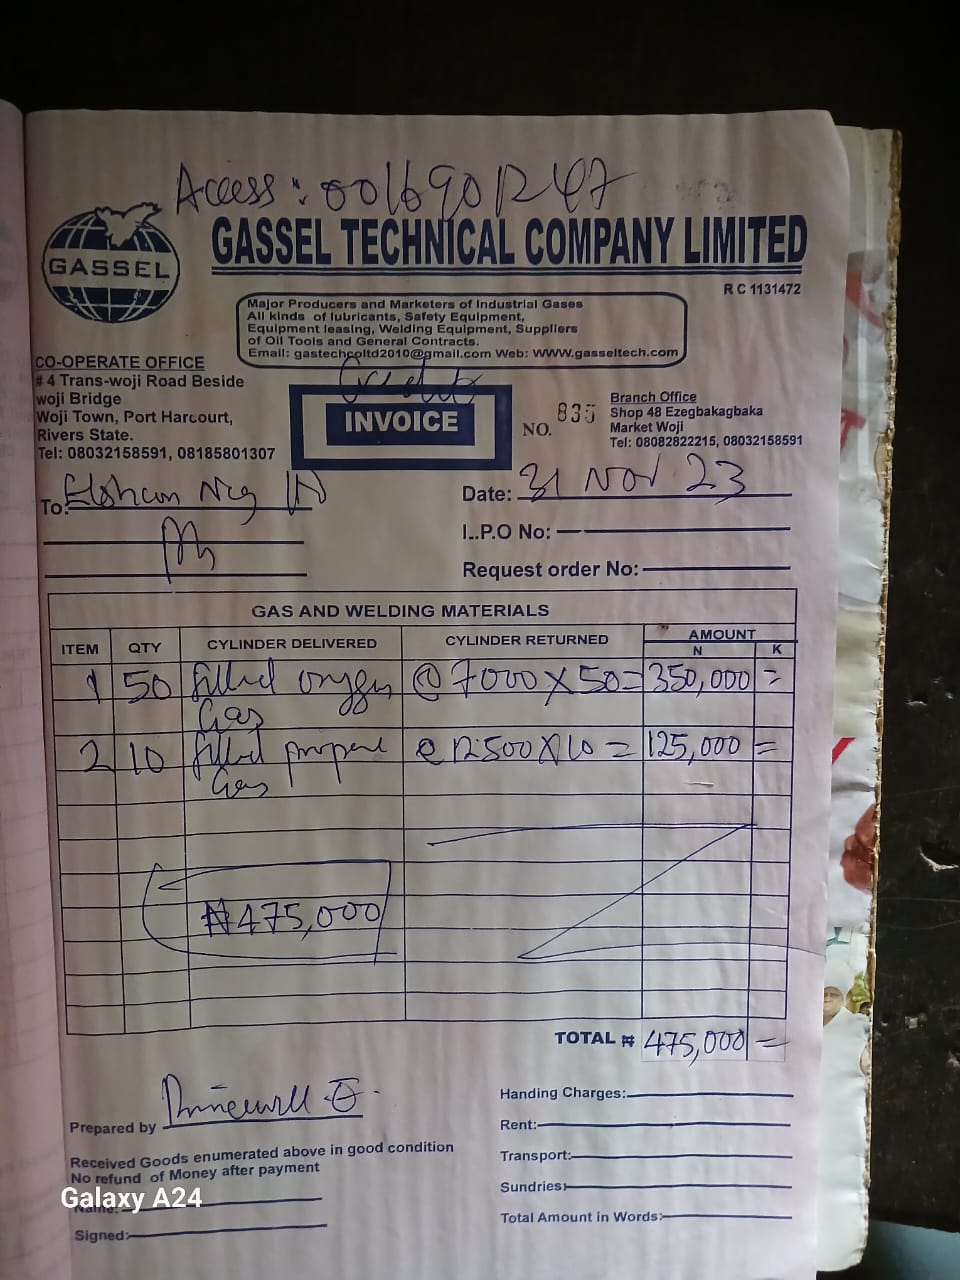 Access: 0016901247
GASSEL
GASSEL TECHNICAL COMPANY LIMITED
R C 1131472
Major Producers and Marketers of Industrial Gases
All kinds of lubricants, Safety Equipment,
Equipment leasing, Welding Equipment, Suppliers
of Oil Tools and General Contracts.
Email: gastechcoltd2010@gmail.com Web: WWW.gasseltech.com
CO-OPERATE OFFICE
# 4 Trans-woji Road Beside
woji Bridge
Woji Town, Port Harcourt,
Rivers State.
Tel: 08032158591, 08185801307
Credit
INVOICE
NO. 835
Branch Office
Shop 48 Ezegbakagbaka
Market Woji
Tel: 08082822215, 08032158591
To: Nig
Date: 31 Nov 23
I..P.O No:
Request order No:
GAS AND WELDING MATERIALS
ITEM QTY CYLINDER DELIVERED CYLINDER RETURNED AMOUNT
N K
1 50 filled oxygen @ 7000 X 50 = 350,000 =
Gas
2 10 filled propane @ 12500 X 10 = 125,000 =
Gas
₦475,000
TOTAL ₦ 475,000 =
Prepared by
Received Goods enumerated above in good condition
No refund of Money after payment
Galaxy A24
Name:
Signed:
Handing Charges:
Rent:
Transport:
Sundries:
Total Amount in Words: